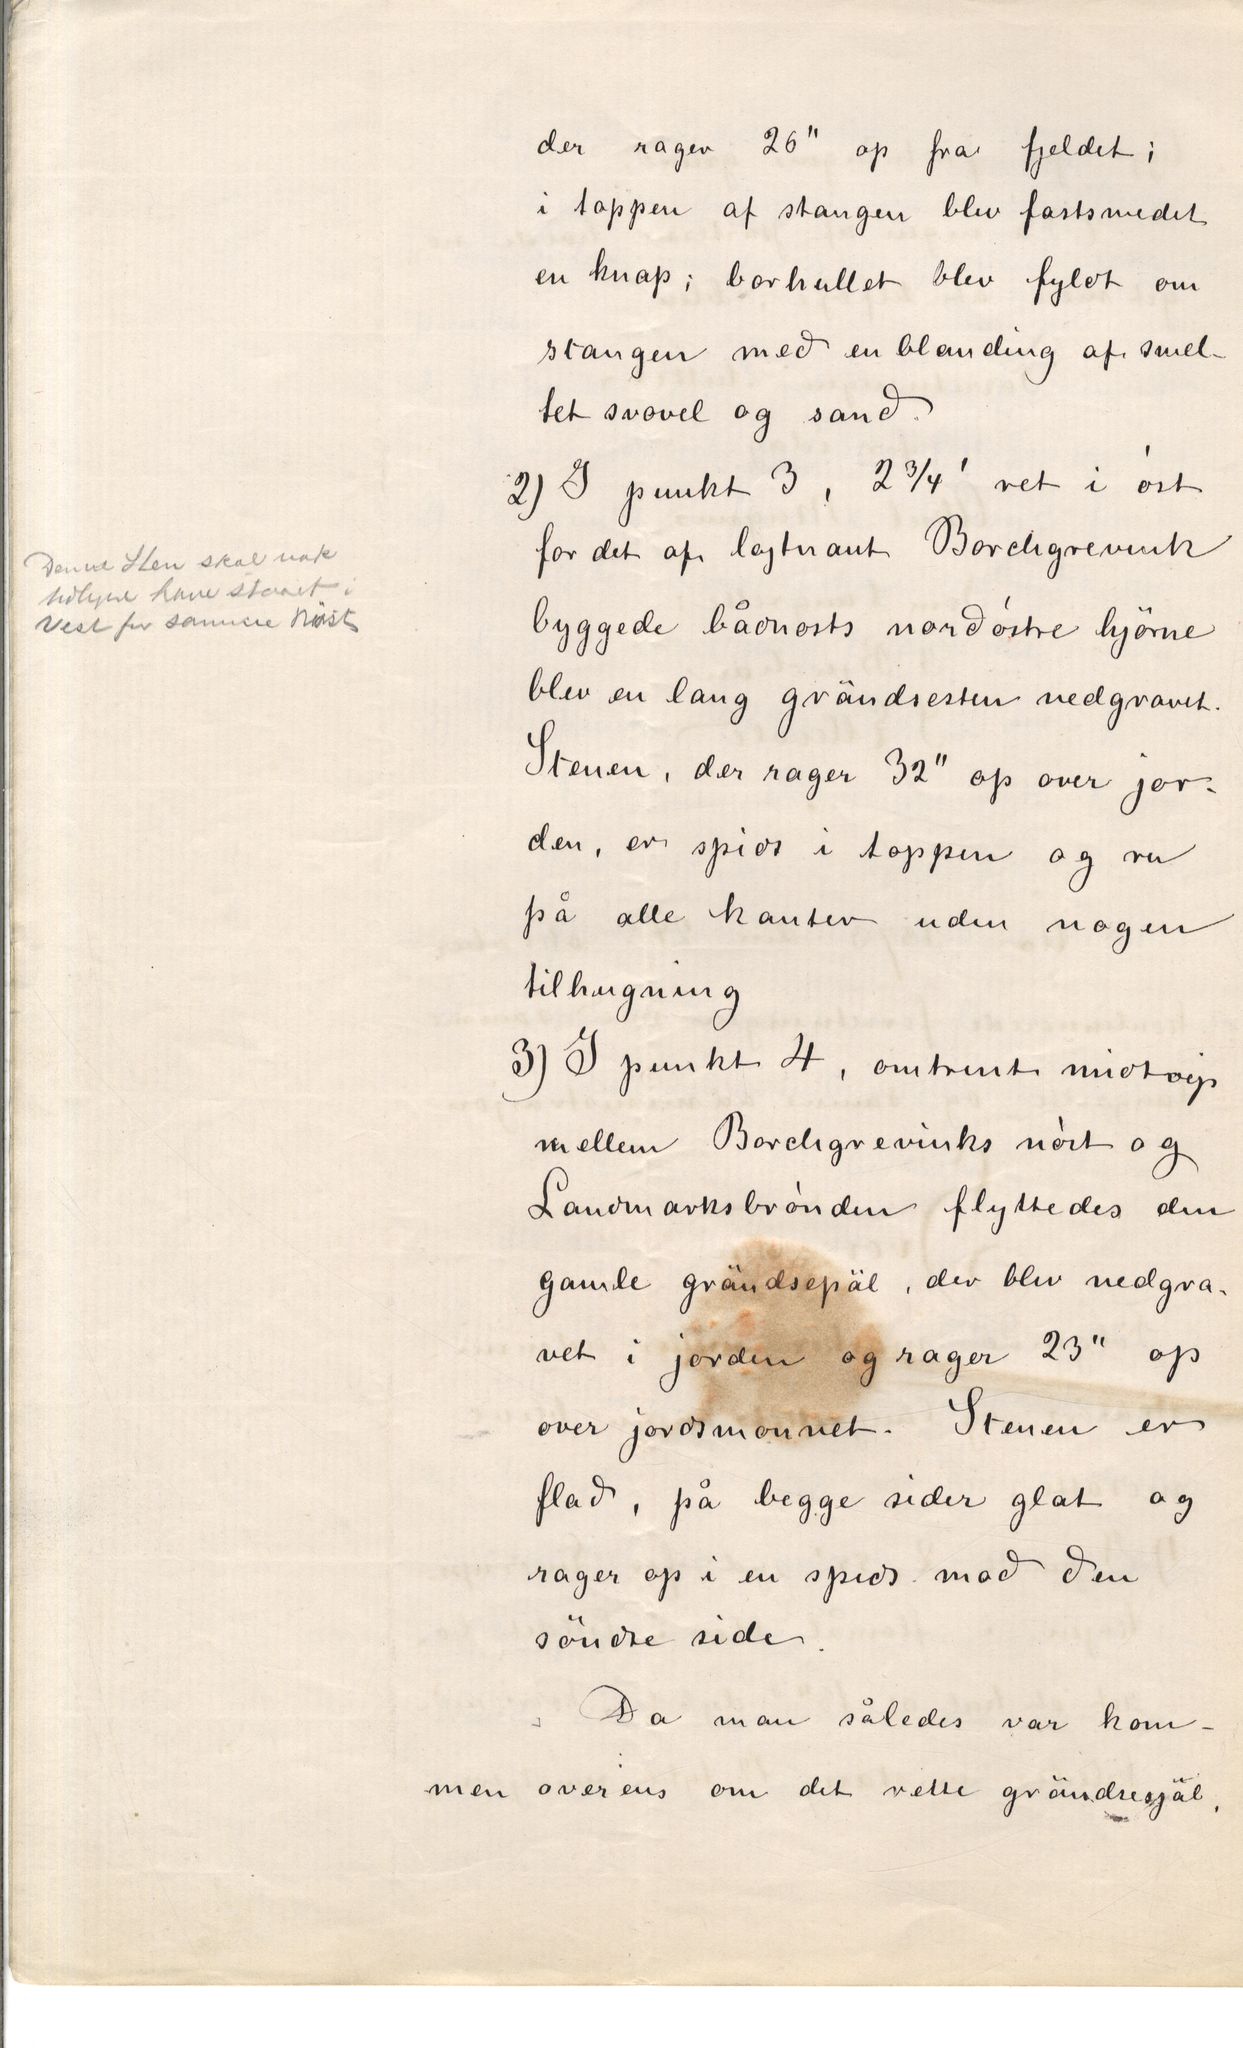 der rager 26" op fra fjeldet;
i toppen af stangen blev fastsmedet
en knap; borhullet blev fyldt om
stangen med en blanding af smel-
tet svovel og sand.
2) I punkt 3, 2 3/4' ret i óst
for det af lojtnant Borchgrevink
byggede bådnosts nordóstre hjörne
blev en lang grändsesten nedgravet.
Stenen, der rager 32" op over jor-
den, er spids i toppen og ru
på alle kanter uden nogen
tilhugning
Denne Sten skal nok
have staaet i
Vest for samme Nöst
3) I punkt 4, omtrent midtvejs
mellem Borchgrevinks nóst og
Landmarksbrónden flyttedes den
gamle grändsepäl, der blev nedgra-
vet i jorden og rager 23" op
over jordsmonnet. Stenen er
flad, på begge sider glat og
rager op i en spids mod den
söndre side.
Da man således var kom-
men overens om det rette grändsesjäl,